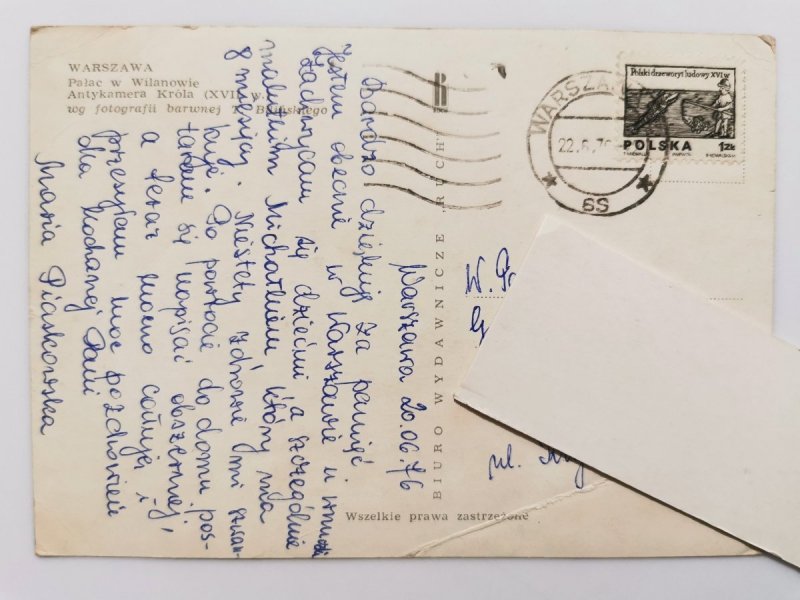 WARSZAWA
Pałac w Wilanowie
Antykamera Króla (XVII w.)
wg fotografii barwnej T.
Warszawa 20.06.76
Bardzo dziękuję za pamięć.
Jestem obecnie w Warszawie u wnuków
Zachwycam się dziećmi a szczególnie
malutkim Michałkiem który ma
8 miesięcy. Niestety zdrowie mi szwan-
kuje. Po powrocie do domu pos-
taram się napisać obszerniej,
a teraz mocno całuję i
przesyłam moc pozdrowień
dla Kochanej Pani
Maria Piaskowska
BIURO WYDAWNICZE "RUCH"
Wszelkie prawa zastrzeżone
WARSZAWA
22.6.76
6S
Polski drzeworyt ludowy XVI w
POLSKA 1 ZŁ
W.
ul.